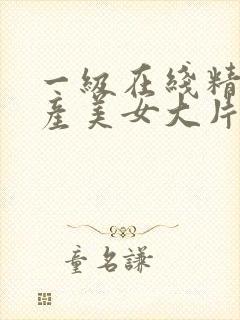 一級在綫精
產美女大片
童名謙